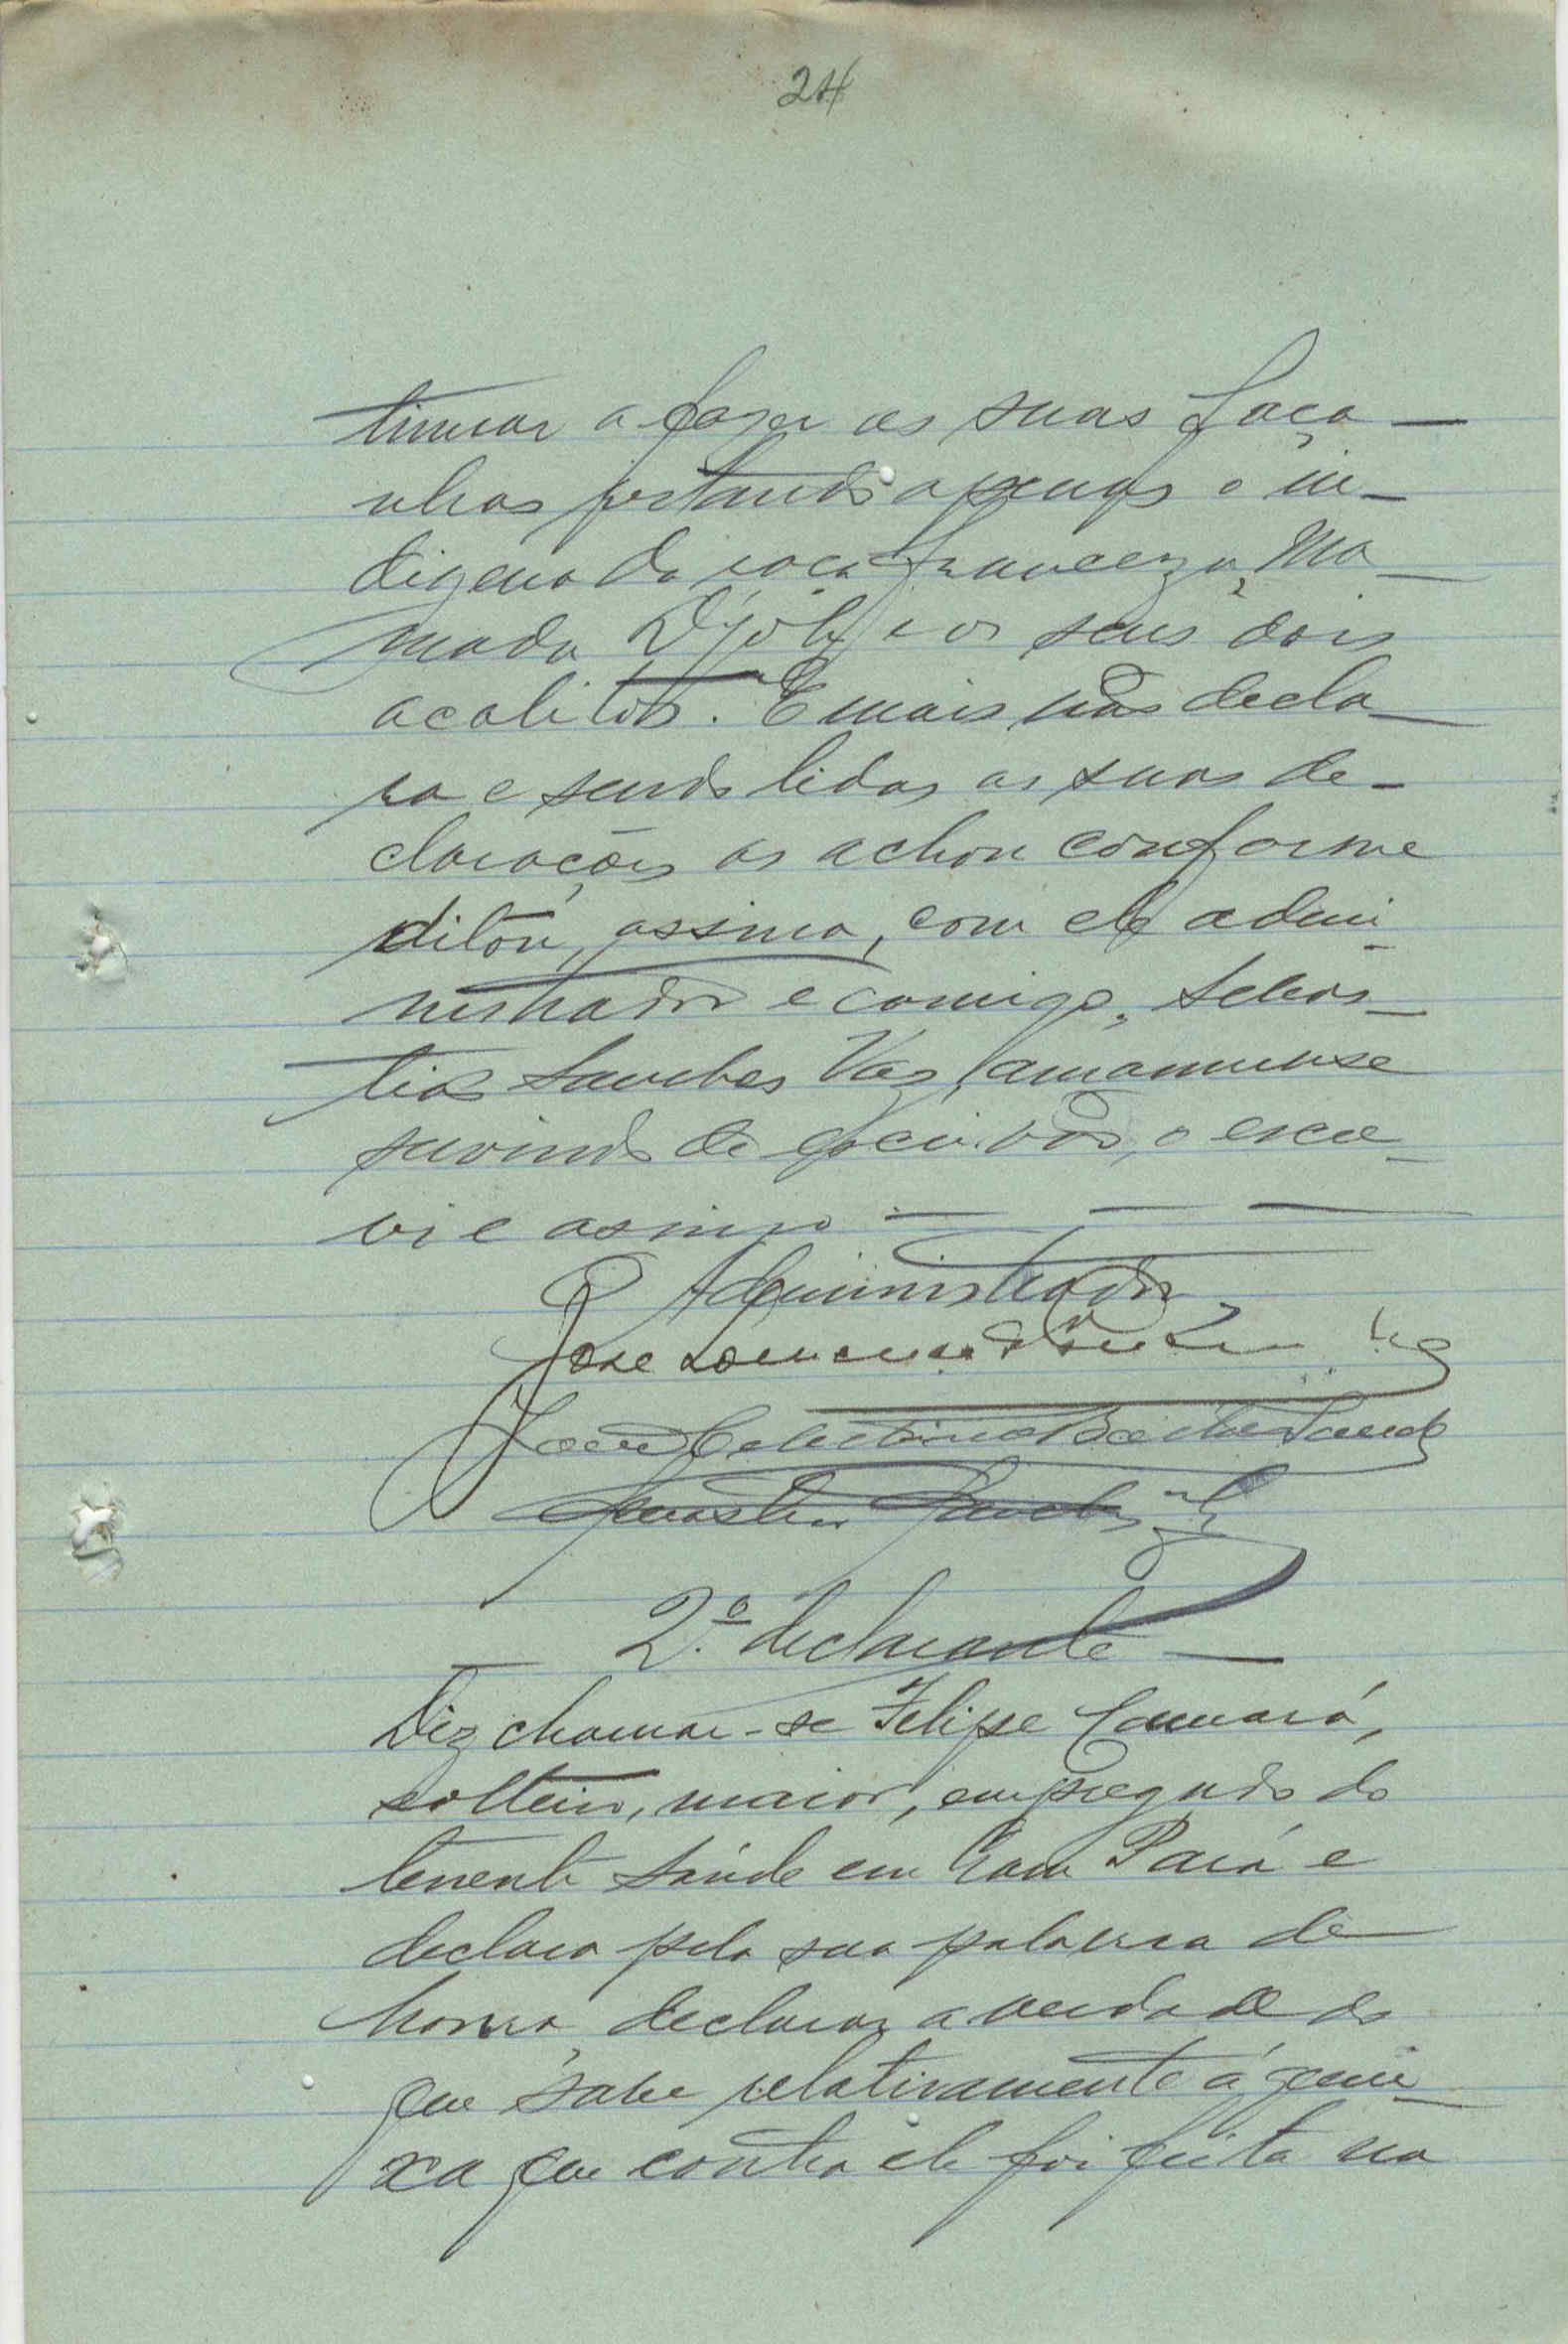 24
tinuar a fazer as suas faça-
nhas portando apenas o in-
digena da raça franceza, Ma-
madu Djob e os seus dois
acolitos. E mais não decla-
ra e sendo lidas as suas de-
clarações as achou conforme
ditou, assina, com ele admi-
nistrador e comigo, Sebas-
tião Sanches Vaz, amanuense
servindo de escrivão, o escre-
vi e assino
O Administrador
José
João Celestino
Sebastião Sanches Vaz
2.º declarante
Diz chamar-se Felipe Camará,
solteiro, maior, empregado do
tenente Saúde em Pará e
declara pela sua palavra de
honra, declarar a verdade do
que sabe relativamente á quei-
xa que contra ele foi feita na